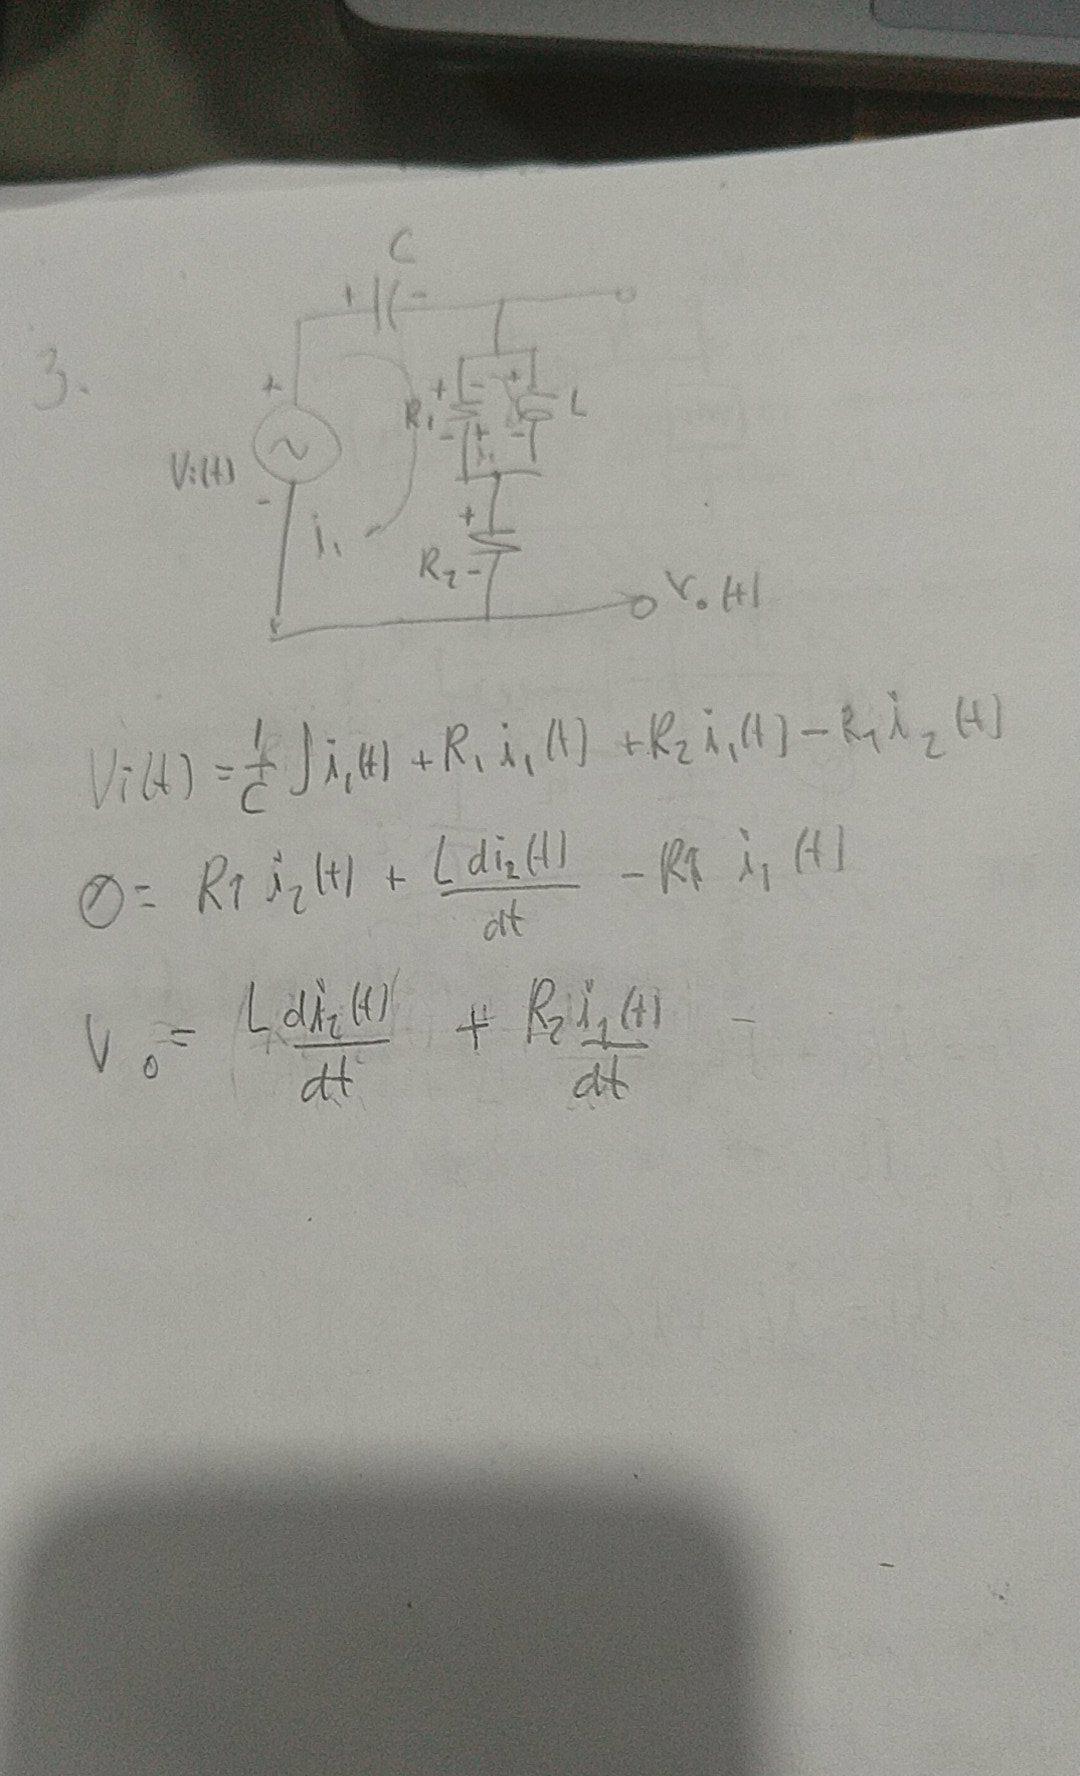 C
+ -
3.
+
+ - +
R₁ L
- + -
Vi(t)
-
i₁
+
R₂ -
V₀(t)
Vi(t) = 1/C ∫ i₁(t) + R₁ i₁(t) + R₂ i₁(t) - R₁ i₂(t)
0 = R1 i₂(t) + L di₂(t)/dt - R1 i₁(t)
V₀ = L di₂(t)/dt + R₂ i₁(t)/dt -